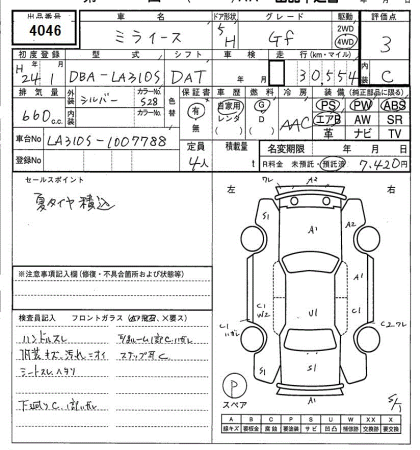 出品番号 車名 ドア形状 グレード 駆動 評価点
4046 ミライース 5 H Gf 2WD 4WD 3
初度登録 型式 シフト 車検 走行(km・マイル) 内装
H 24 1 DBA-LA310S DAT 年 月 30,554 C
排気量 外装 カラーNo. 色替 保証書 車歴 燃料 冷房 装備(純正品に限る)
660c.c. シルバー S28 有 無 自家用 レンタ ( ) G D ( ) AAC PS PW ABS
内装 カラーNo. エアB AW SR
革 ナビ TV
車台No LA310S-1007788 定員 積載量 名変期限 年 月 日
登録No 4人 t R料金 未預託・預託済 7,420円
セールスポイント
夏タイヤ積込
左 右
ワレ A2
S1 A1 A1 S1
C1 W2 U1 C1
C1 C2ワレ
S1
※注意事項記入欄(修復・不具合箇所および状態等)
検査員記入 フロントガラス
ハンドルスレ
内装キズ、汚れニオイ
シートスレヘタリ
下廻りC
P
スペア
A B C P S U W X XX
線キズ 要板金 腐蝕 要塗装 サビ 凹凸 補修跡 要交換 交換済